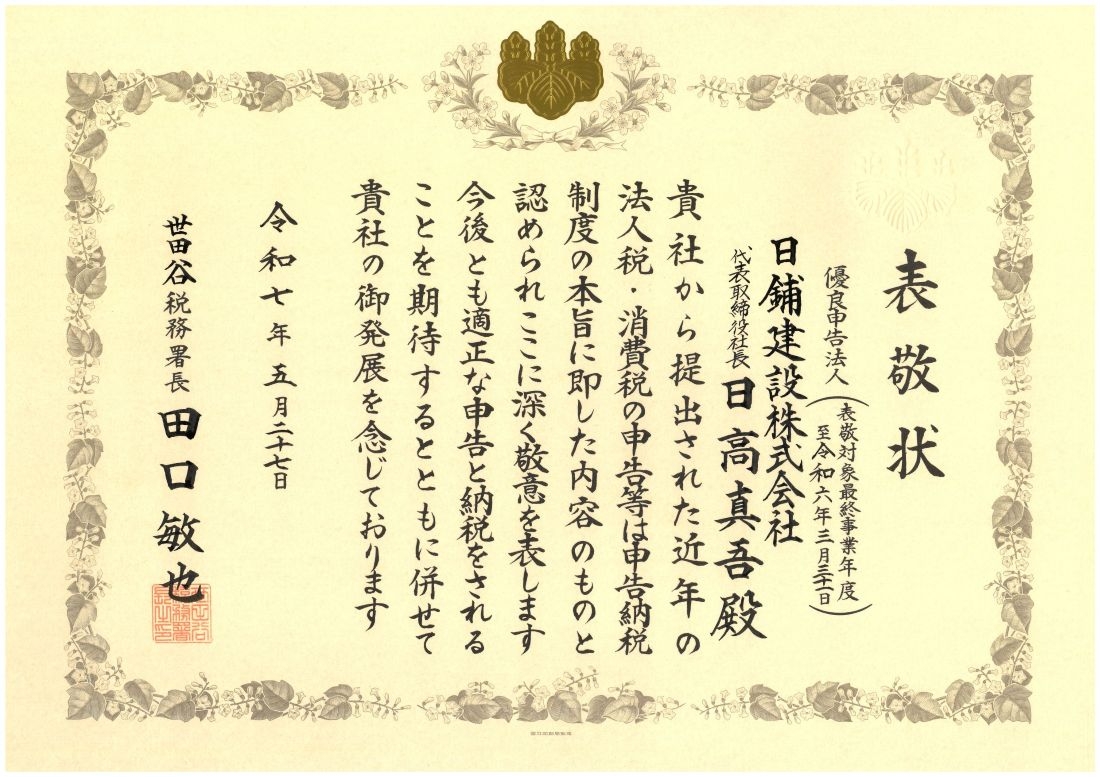 表敬状
優良申告法人
(表敬対象最終事業年度
至令和六年三月三十一日)
日鋪建設株式会社
代表取締役社長 日高真吾殿
貴社から提出された近年の
法人税・消費税の申告等は申告納税
制度の本旨に即した内容のものと
認められここに深く敬意を表します
今後とも適正な申告と納税をされる
ことを期待するとともに併せて
貴社の御発展を念じております
令和七年五月二十七日
世田谷税務署長 田口敏也